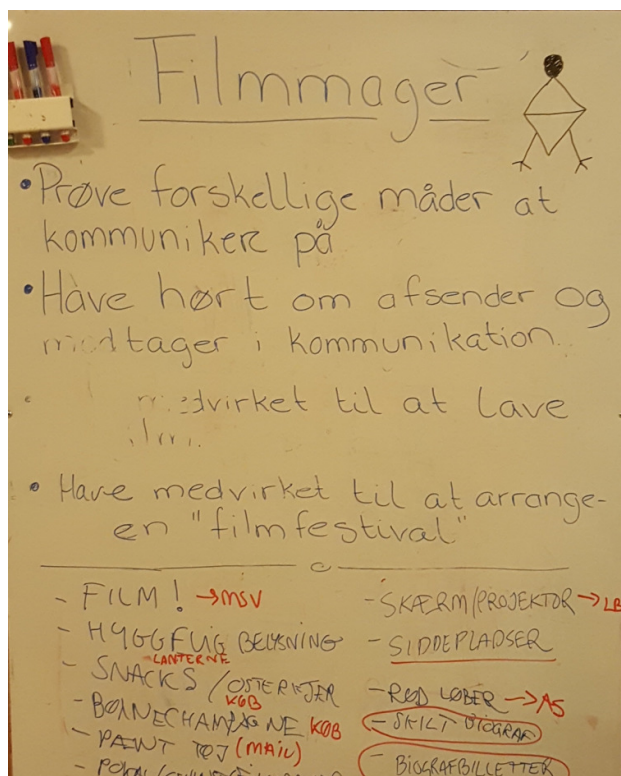 Filmmager
• Prøve forskellige måder at
kommuniker på
• Have hørt om afsender og
modtager i kommunikation.
medvirket til at lave
• Have medvirket til at arrange-
en "filmfestival"
- FILM! →MSV
- HYGGELIG BELYSNING
LANTERNE
- SNACKS /
KØB
- BØRNECHAMPAGNE KØB
- PÆNT TØJ (MAIL)
- SKÆRM/PROJEKTOR →LB
- SIDDEPLADSER
- RØD LØBER →AS
- SKILT BIOGRAF
BIOGRAFBILLETTER